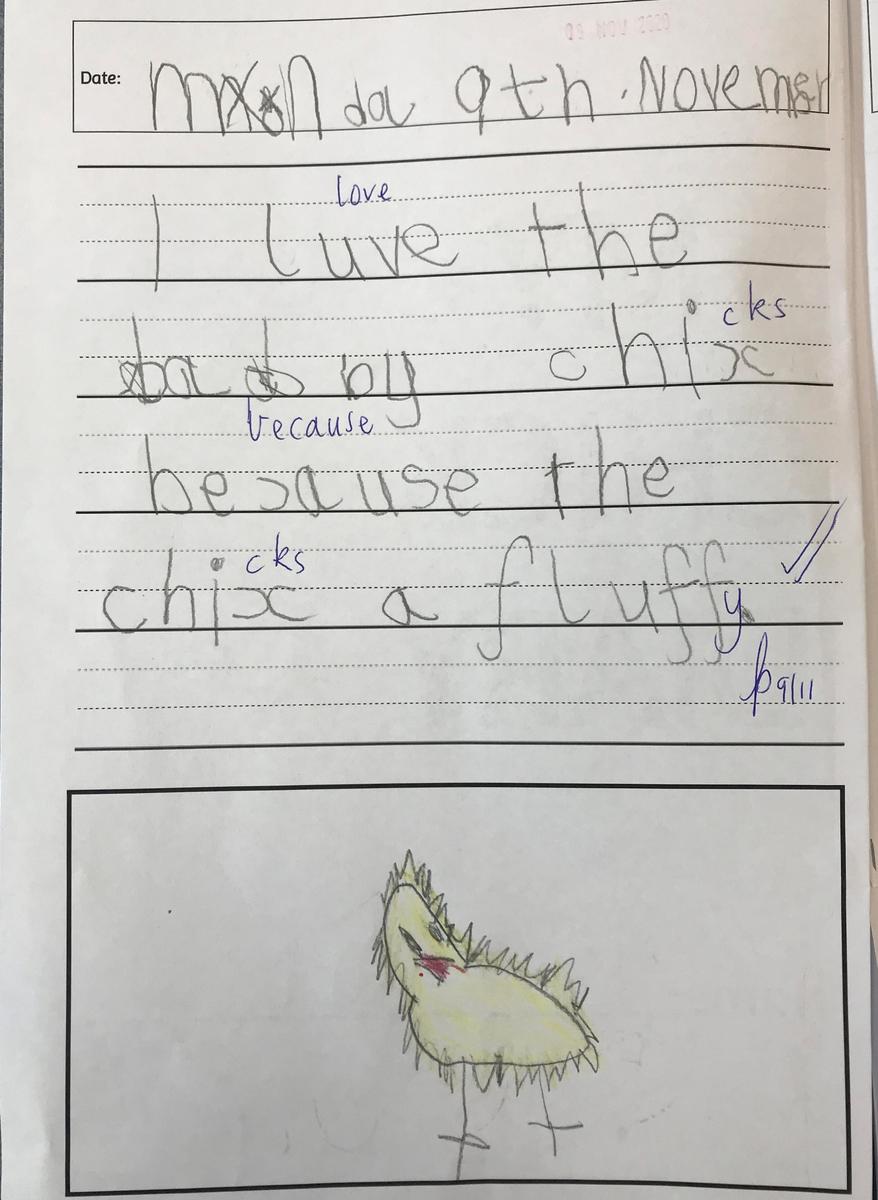 09 NOV 2020
Date: monda 9th. Novemer
love
I luve the
cks
baby chix
because
because the
cks
chix a fluffy.
9/11